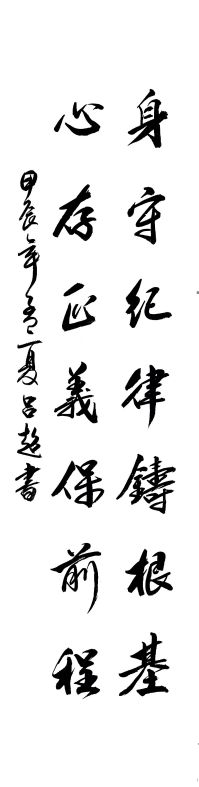 身守纪律鑄根基
心存正義保前程
甲辰年孟夏吕超書